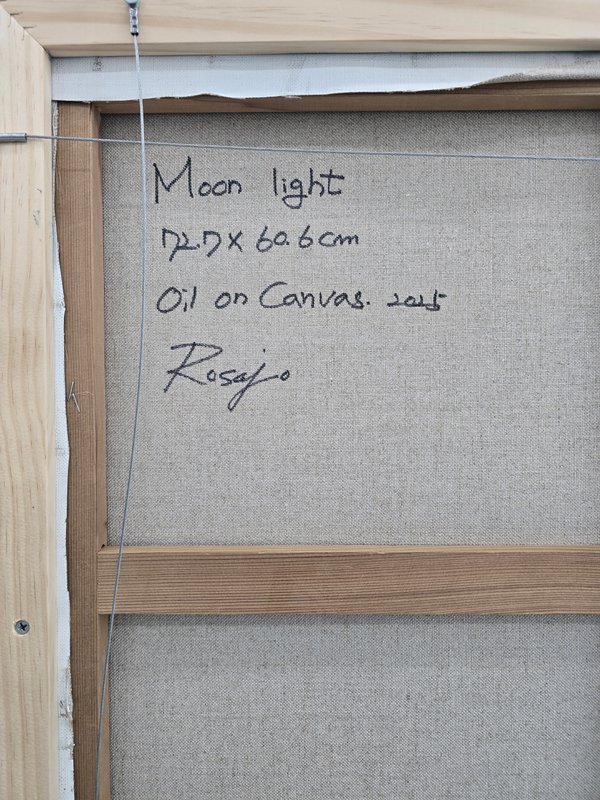 Moon light
72.7 X 60.6 cm
Oil on Canvas. 2025
Rosajo